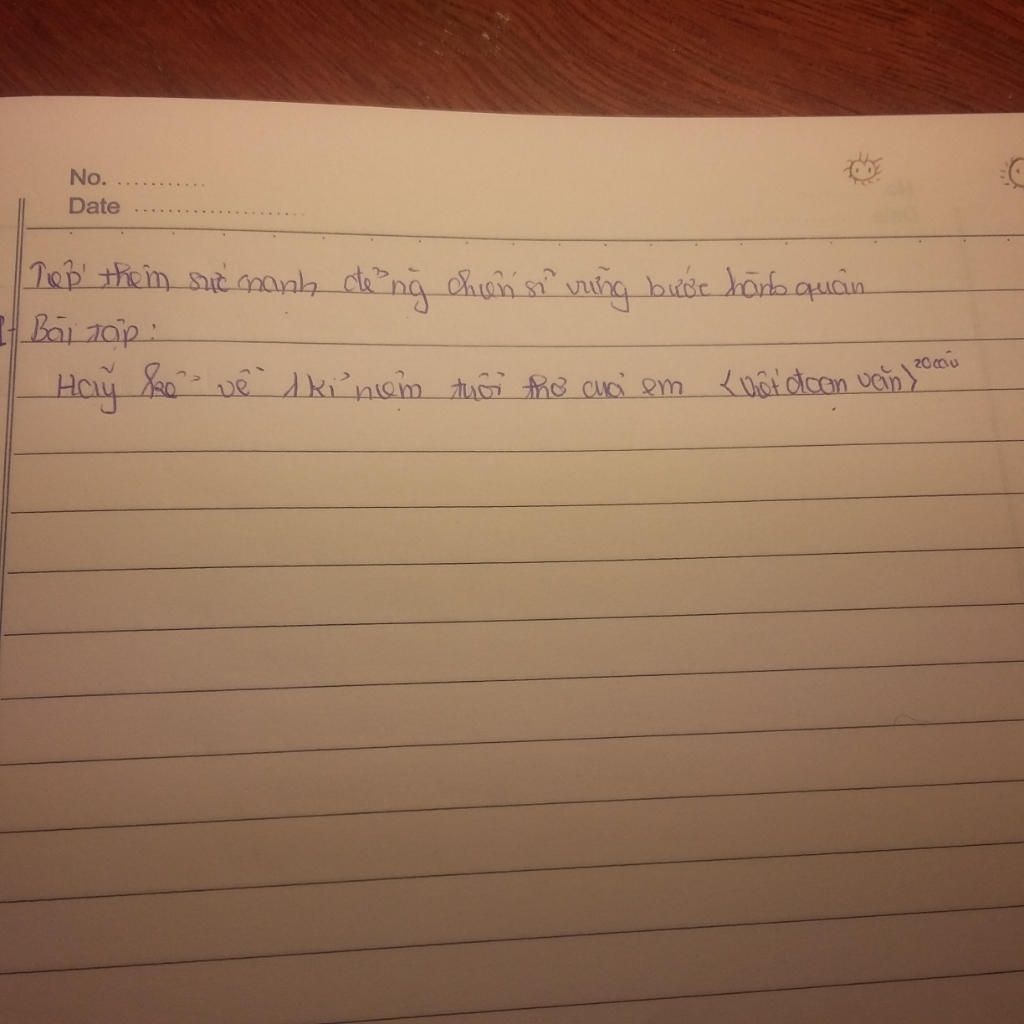 No. ...........
Date .....................
Tiếp thêm sức mạnh để ng chiến sĩ vững bước hành quân
Bài tập:
Hãy kể về 1 kỉ niệm tuổi thơ của em <viết đoạn văn> 20 câu